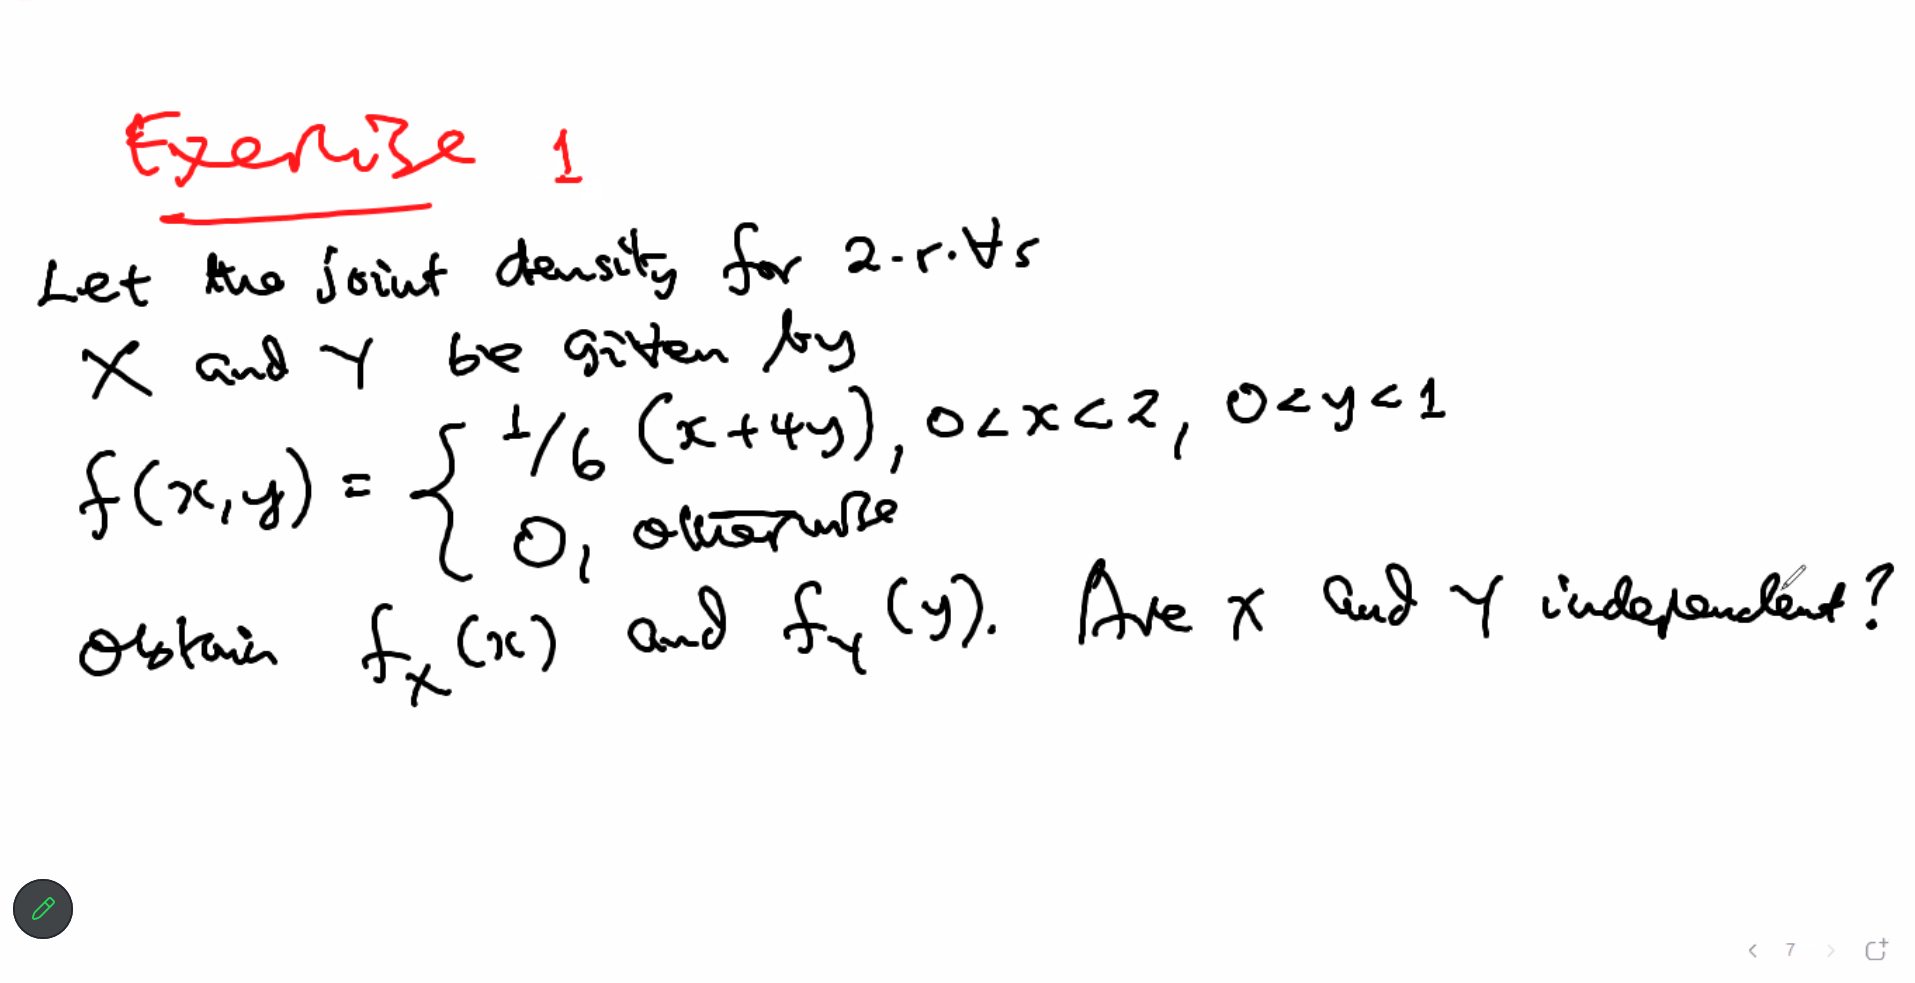 Exercise 1
Let the joint density for 2-r.Vs
X and Y be given by
f(x,y) = { 1/6 (x+4y), 0<x<2, 0<y<1
0, otherwise
obtain f_X(x) and f_Y(y). Are X and Y independent?
7